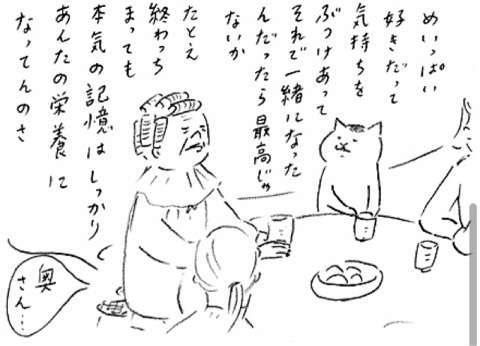 めいっぱい
好きだって
気持ちを
ぶつけあって
それで一緒になった
んだったら最高じゃ
ないか
たとえ
終わっち
まっても
本気の記憶はしっかり
あんたの栄養に
なってんのさ
奥
さん…